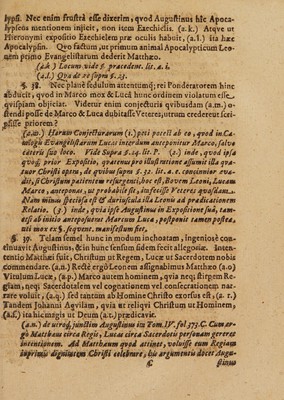 lypſi. Nec enim fruſtrà eſſe dixerim, qvod Auguſtinus hîc Apoca-
lypſeos mentionem injicit, non item Ezechielis. (a.k.) Atqve ut
Hieronymi expoſitio Ezechielem præ oculis habuit, (a.l.) ita hæc
Apocalypſin. Qvo factum, ut primum animal Apocalypticum Leo-
nem primo Evangeliſtarum dederit Matthæo.
(a.k.) Locum vide §. præcedent. lit. a. i.
(a.l.) Qva de re ſupra §. 23.
§. 38. Nec planè ſedulum attentumq; rei Ponderatorem hinc
abducit, qvod in Marco mox & Lucâ hunc ordinem violatum eſſe,
qviſpiam objiciat. Videtur enim conjecturis qvibusdam (a.m.) o-
ſtendi poſſe de Marco & Luca dubitaſſe Veteres, utrum crederent ſcri-
pſiſſe priorem.
(a.m.) Harum Conjecturarum (1.) peti poteſt ab eo, quod in Ca-
talogo Evangeliſtarum Lucas interdum anteponitur Marco, ſalvo
cæteris ſuo loco. Vide Supra §. 19. lit. P. (2.) inde, quod ipſa
qvoq; prior Expoſitio, quatenus pro illuſtratione aſſumit illa qva-
tuor Chriſti opera, de qvibus ſupra §. 32. lit. a. t. concinnior eva-
dit, ſi Chriſtum patientem reſurgenti, hoc eſt, Bovem Leoni, Lucam
Marco, anteponas, ut probabile ſit, inſpexiſſe Veteres quoſdam.
Nam minus ſpecioſa eſt & duriuſcula illa Leonis ad prædicationem
Relatio. (3.) inde, quia ipſe Auguſtinus in Expoſitione ſuâ, tam-
etſi ab initio antepoſuerat Marcum Lucæ, poſtponit tamen poſtea,
uti mox ex §. ſeqvent. manifeſtum fiet.
§. 39. Telam ſemel hunc in modum inchoatam, ingenioſè con-
tinuavit Auguſtinus, & in hunc ſenſum idem ferit allegoriæ. Inten-
tentio Matthæi fuit, Chriſtum ut Regem, Lucæ ut Sacerdotem nobis
commendare. (a.n.) Rectè ergò Leonem aſſignabimus Matthæo (a.o.)
Vitulum Lucæ, (a.p.) Marco autem hominem, qvia neqve ſtirpem Re-
giam, neqve Sacerdotalem vel cognationem vel conſecrationem nar-
rare voluit, (a.q.) ſed tantum ab Homine Chriſto exorſus eſt, (a.r.)
Tandem Johanni Aqvilam, qvia ut reliqvi Chriſtum ut Hominem,
(a.ſ.) ita hic magis ut Deum (a.t.) prædicavit.
(a.n.) de utroq; junctim Auguſtinus in Tom. IV. fol. 375. C. Cum er-
gò Matthæus circa Regis, Lucas circa Sacerdotis perſonam gereret
intentionem. Ad Matthæum quod attinet, voluiſſe eum Regiam
inprimis dignitatem Chriſti celebrare, his argumentis docet Augu-
C
ſtinus